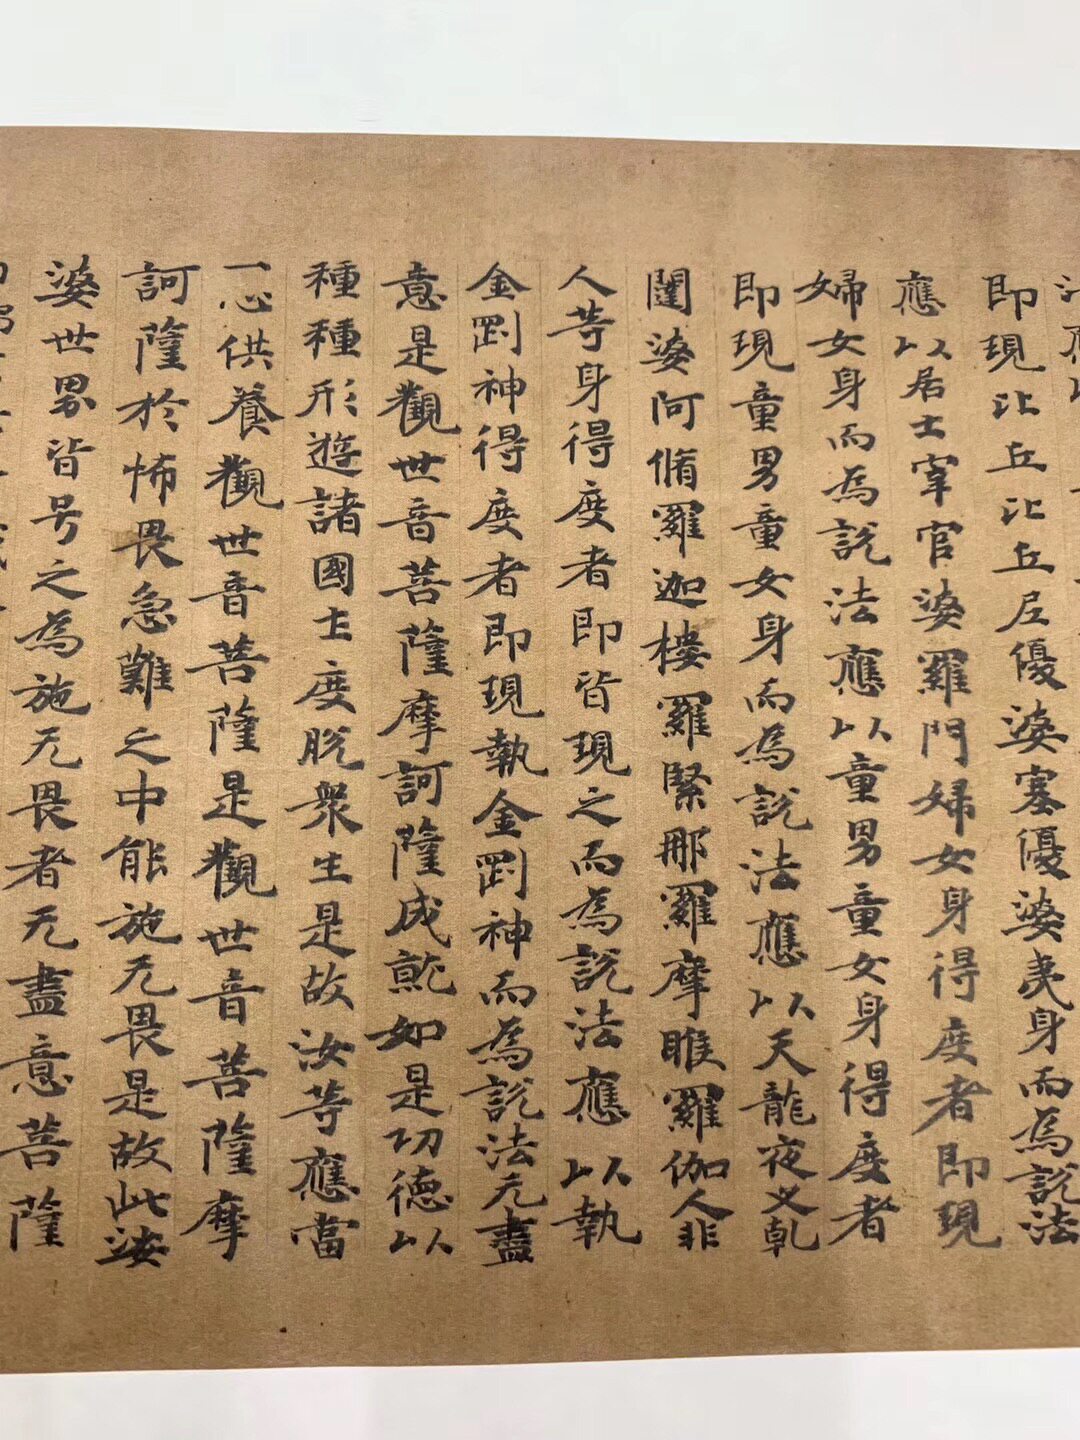 即現比丘比丘尼優婆塞優婆夷身而為說法
應以居士宰官婆羅門婦女身得度者即現
婦女身而為說法應以童男童女身得度者
即現童男童女身而為說法應以天龍夜叉乹
闥婆阿脩羅迦樓羅緊那羅摩睺羅伽人非
人等身得度者即皆現之而為說法應以執
金剛神得度者即現執金剛神而為說法无盡
意是觀世音菩薩摩訶薩成就如是功德以
種種形遊諸國土度脫衆生是故汝等應當
一心供養觀世音菩薩是觀世音菩薩摩
訶薩於怖畏急難之中能施无畏是故此娑
婆世界皆号之為施无畏者无盡意菩薩